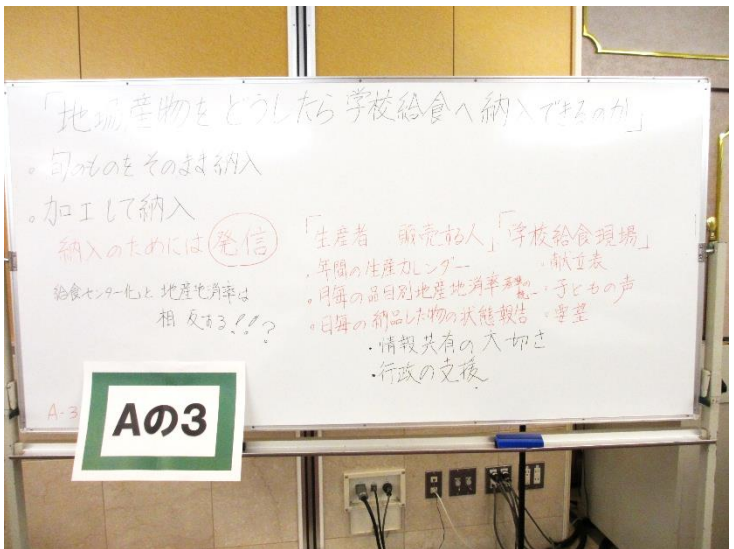 「地場産物をどうしたら学校給食へ納入できるのか」
。旬のものをそのまま納入
。加工して納入
納入のためには 発信
給食センター化と地産地消率は
相反する!!!?
「生産者 販売する人」「学校給食現場」
・年間の生産カレンダー ・献立表
・月毎の品目別地産地消率 ・子どもの声
・日毎の納品した物の状態報告 ・要望
・情報共有の大切さ
・行政の支援
A-3
Aの3